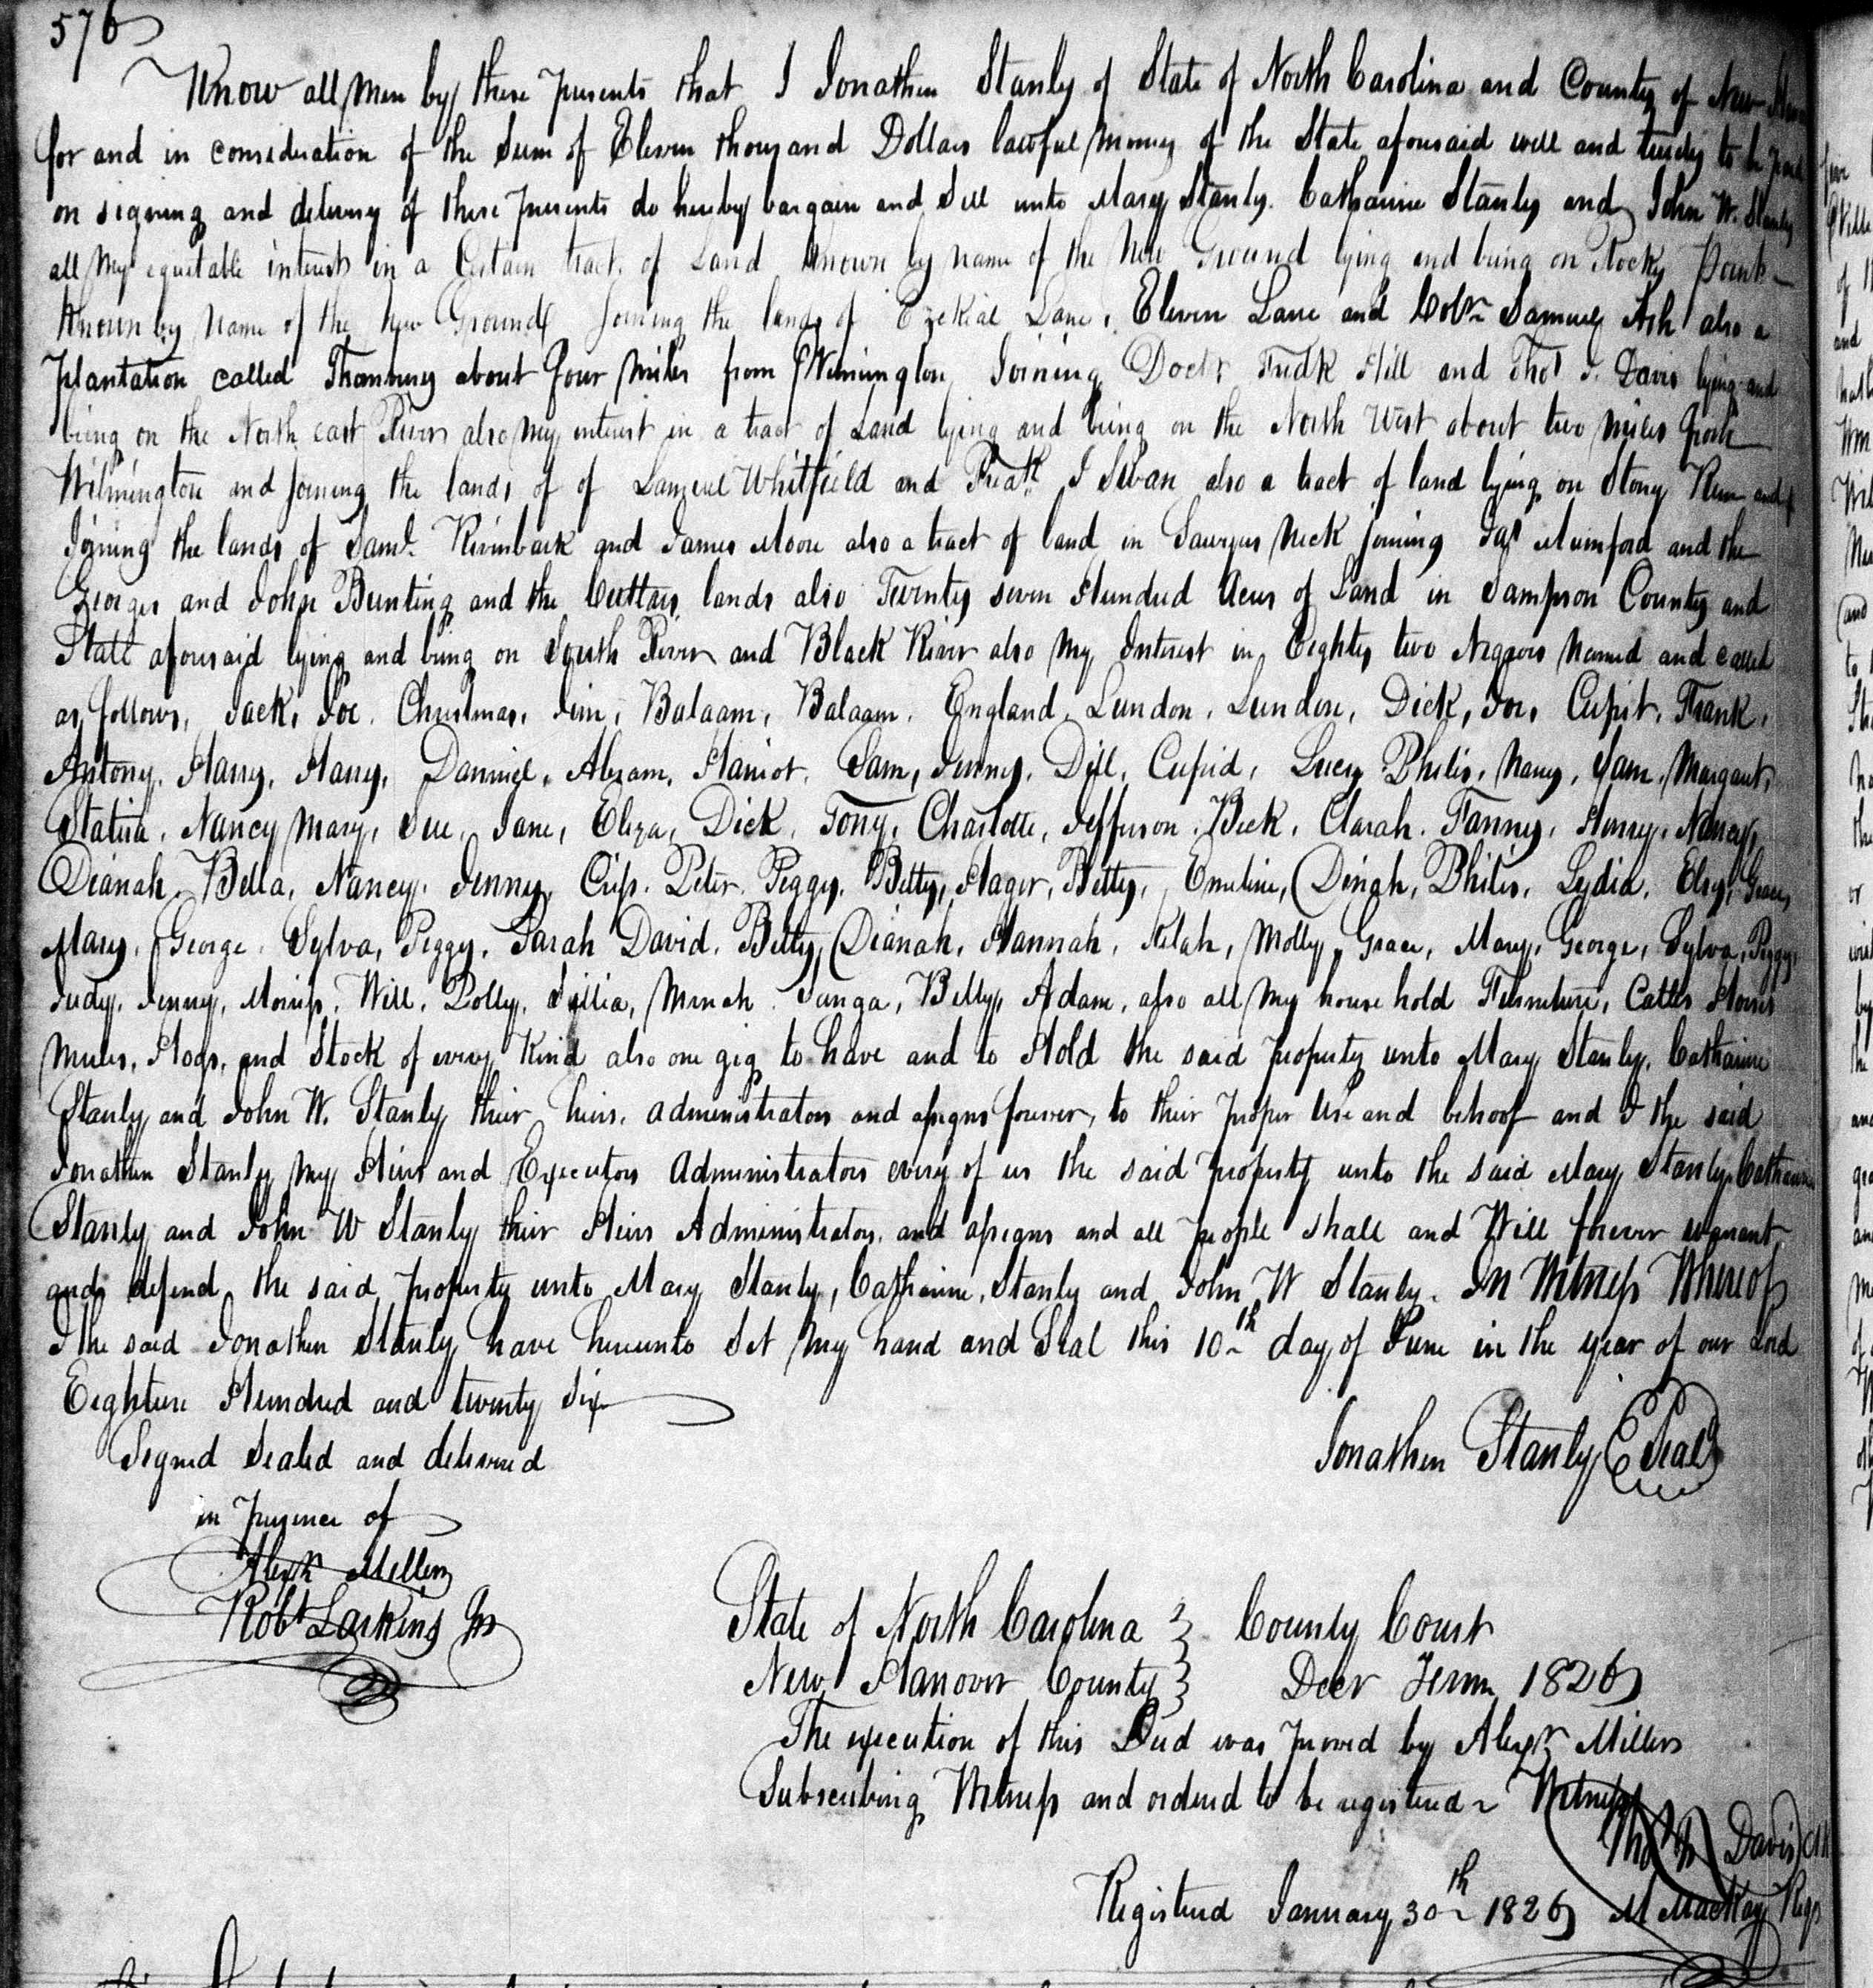 576
Know all men by these presents that I Jonathan Stanly of State of North Carolina and County of New
for and in consideration of the Sum of Eleven thousand Dollars lawful money of the State aforesaid well and truely to be paid
on signing and delivery of these presents do hereby bargain and Sell unto Mary Stanly. Catharine Stanly and John W. Stanly
all my equitable interests in a Certain tract of Land Known by name of the New Ground lying and being on Rocky Point
Known by name of the New Ground Joining the lands of Ezekial Lane, Eleven Lane and Coln Samuel Ash also a
Plantation called about four miles from Wilmington, Joining Doctr Fredk Hill and Thos J. Davis lying and
being on the North east River also my interest in a tract of Land lying and being on the North West about two miles from
Wilmington and Joining the lands of of Samuel Whitfield and Fredk J Swan also a tract of land lying on Stony Run and
Joining the lands of Saml. and James Moore also a tract of land in Neck joining Jas Mumford and the
Georges and John Bunting and the lands also Twenty seven Hundred Acres of Land in Sampson County and
State aforesaid lying and being on South River and Black River also my Interest in Eighty two Negroes Named and called
as follows, Jack, Joe. Christmas, Jim, Balaam, Balaam. England, Lundon, Lundon, Dick, Joe, Cupit, Frank,
Antony, Harry, Harry, Danniel, Abram, Hariot. Sam, Jenny. Dill, Cupid, Lucy Philis, Nancy, Sam, Margaret,
Statira, Nancy Mary, Sue, Jane, Eliza, Dick, Tony, Charlotte, Jefferson, Beck, Clarah. Fanny, Henry, Nancy,
Dianah, Bella, Nancy, Jenny, Peter, Peggy, Betty, Hager, Betty, Emeline, Dinah, Philis, Lydia, Elsy, Grace,
Mary, George, Sylva, Peggy, Sarah David. Betty, Dianah, Hannah, Molly, Grace, Mary, George, Sylva, Peggy,
Judy, Jenny, Will, Polly, Adam, also all my house hold Furniture, Cattle Horses
Mules, Hogs, and Stock of every Kind also one gig to have and to Hold the said property unto Mary Stanly. Catharine
Stanly and John W. Stanly their heirs, administrators and assigns forever, to their proper Use and behoof and I the said
Jonathan Stanly my Heirs and Executors Administrators every of us the said property unto the said Mary Stanly, Catharine
Stanly and John W Stanly their Heirs Administrators, and assigns and all people shall and Will forever warrant
and defend the said property unto Mary Stanly, Catharine, Stanly and John W Stanly. In Witness Whereof
I the said Jonathan Stanly have hereunto Set my hand and Seal this 10th day of June in the year of our Lord
Eighteen Hundred and twenty Six
Signed Sealed and delivered
Jonathan Stanly Seal
in presence of
Alexr Miller
Robt Larkins Jr
State of North Carolina County Court
New Hanover County Decr Term 1826
The execution of this Deed was proved by Alexr Miller
Subscribing Witness and orderd to be registered Witness
Davis
Registered January 30th 1826 M MacKay Regr